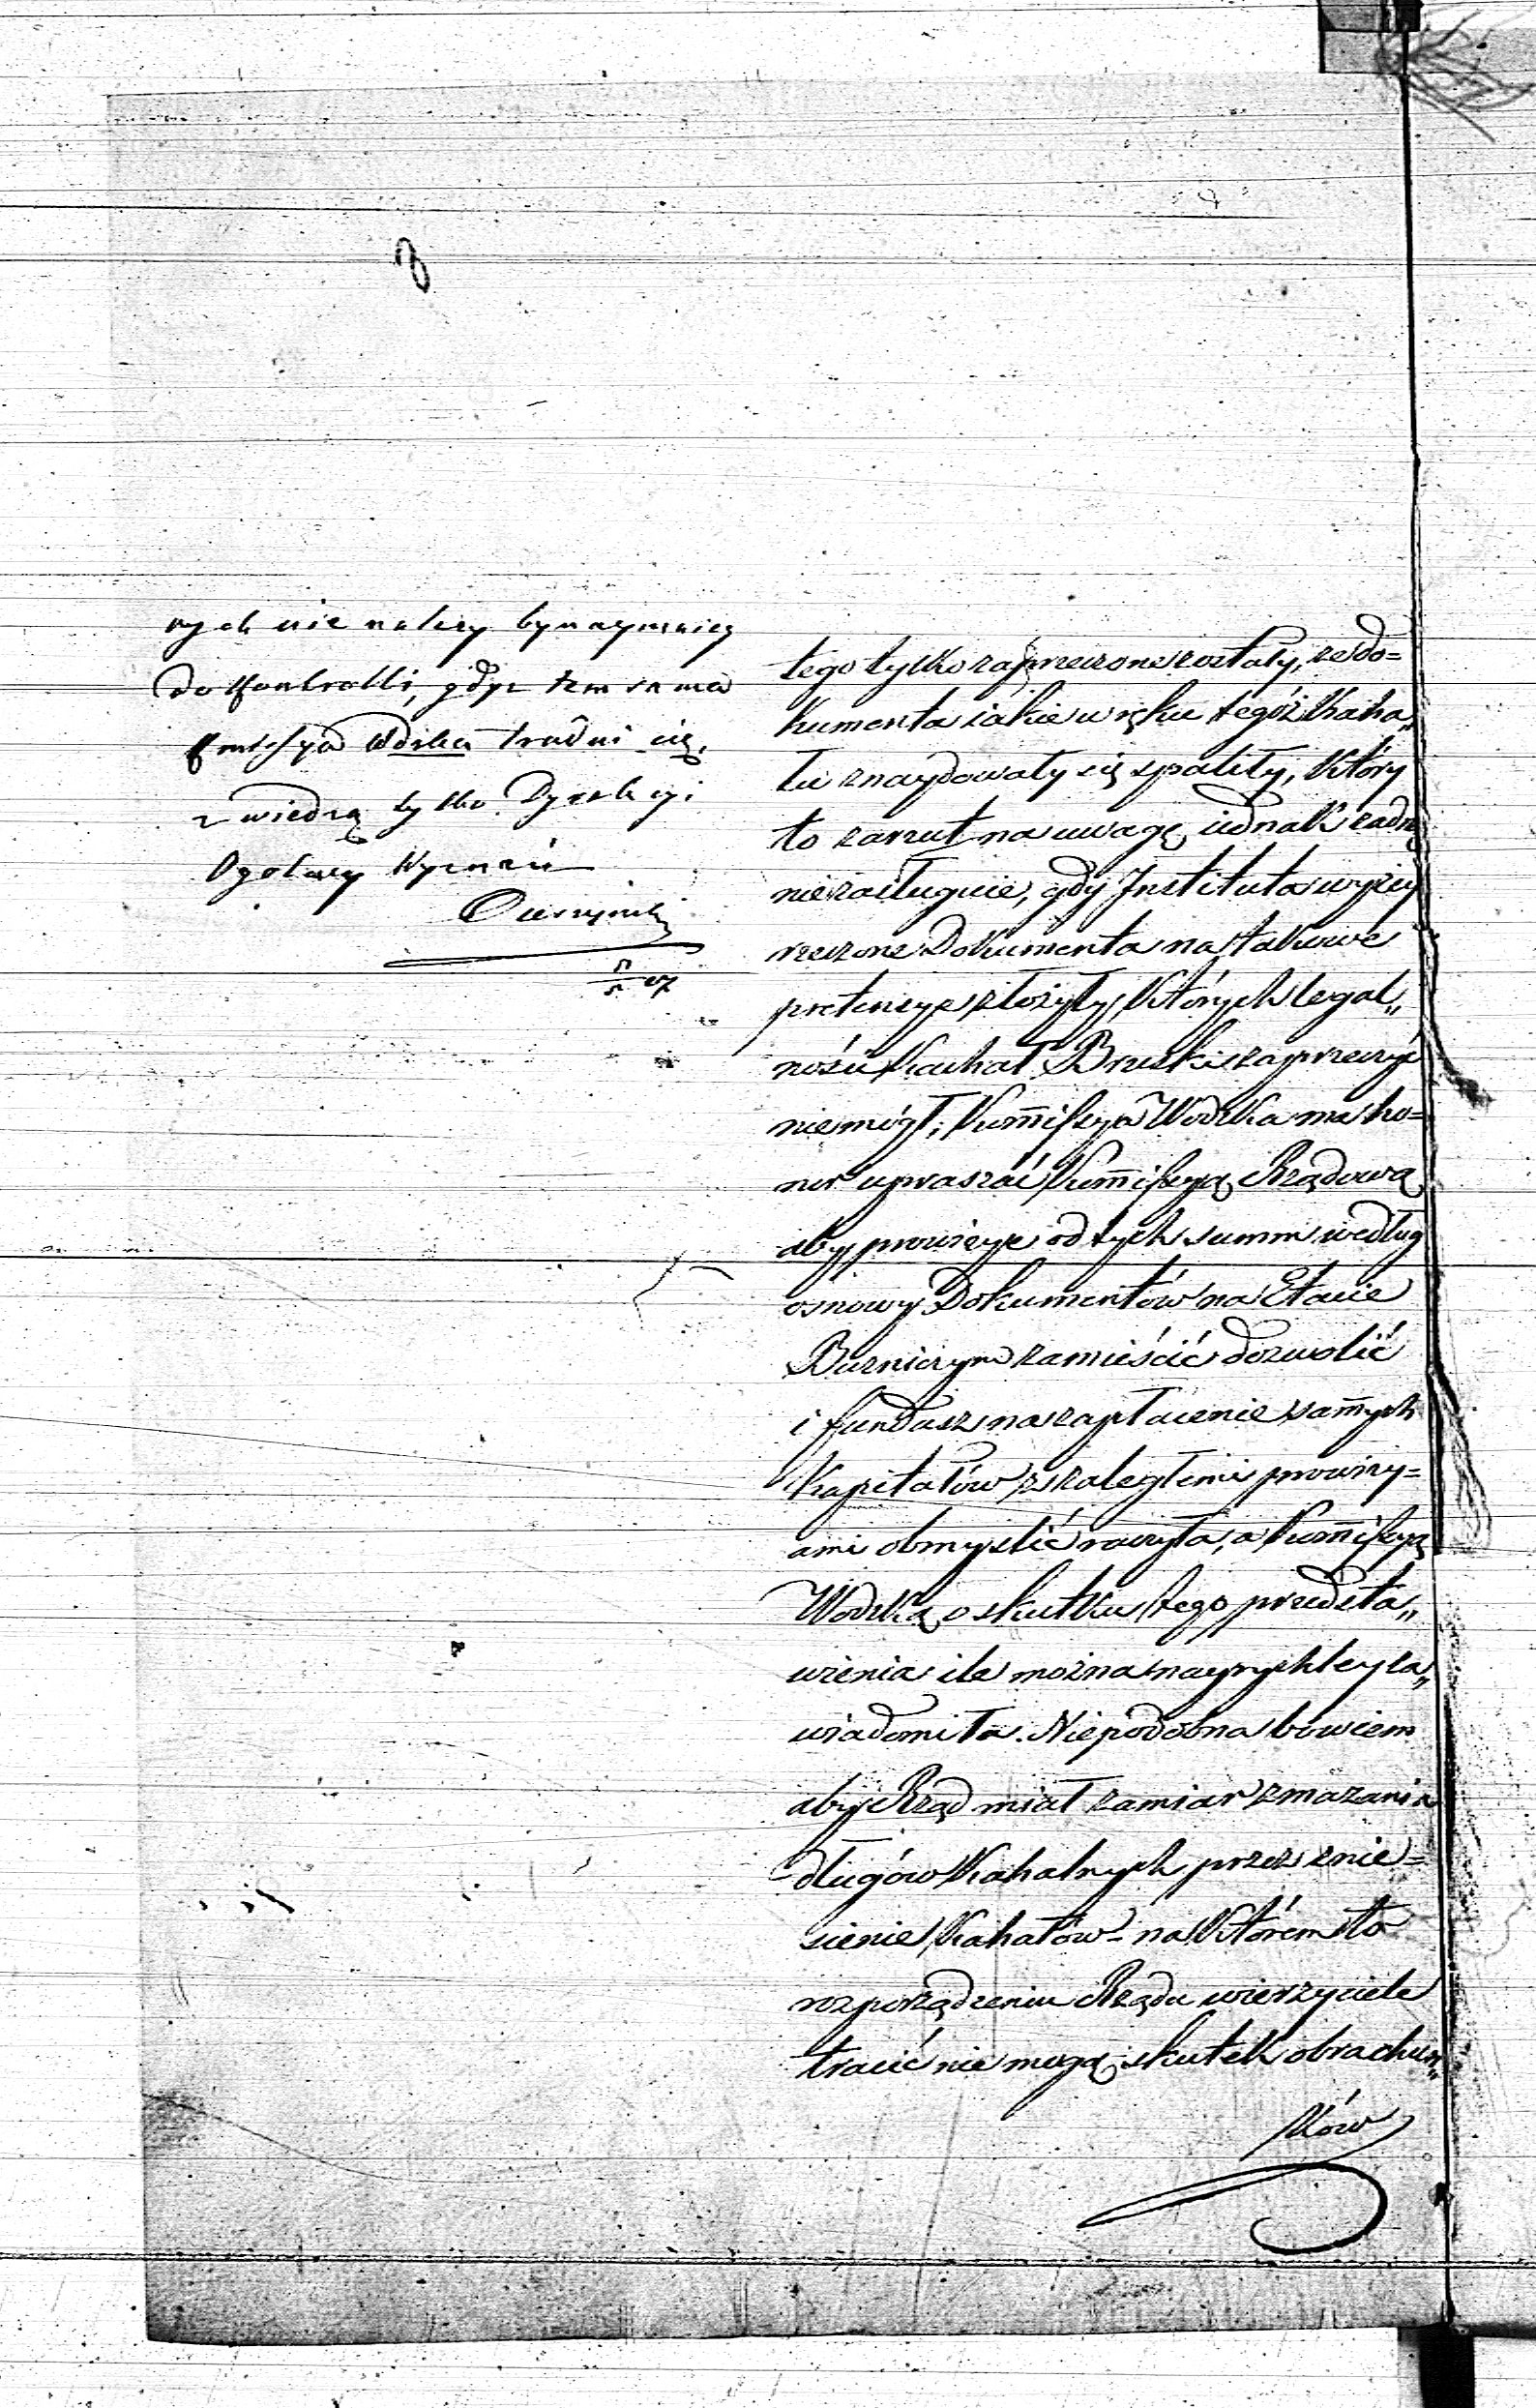 rych nie należy bynaymniey
do Kontrolli, gdyż tem sama
Kmissya Wdzka trudni się,
z wiedzą tylko Dyrekcyi
Ogólney Wyznań
tego tylko zaprzeczone zostały, że do=
kumenta iakie w ręku tegóż Kaha„
łu znaydowały się spaliły, który
to zarzut na uwagę iednak żadną
niezasługuie, gdy Instituta wyżey
rzeczone Dokumenta na takowe
pretensye złożyły, których legal„
nośći Kachał Brzeski zaprzeczyć
niemógł; Kommissya Wodzka ma ho=
nor upraszać Kommissyą Rządową
aby prowizye od tych summ według
osnowy Dokumentów na Etacie
Buzniczym zamieśćić dozwolić
i fundusz na zapłacenie samych
Kapitałów z zaległemi prowizy=
ami obmyslić raczyła, a Kommissyą
Wodzką o skutku tego przedsta„
wienia ile można nayrychley za„
wiadomiła. Niepodobna bowiem
aby Rząd miał zamiar zmazania
długów Kahalnych przez znie=
sienie Kahałów - na którem to
rozporządzeniu Rządu wierzyciele
tracić nie mogą; skutek obrachun„
ków